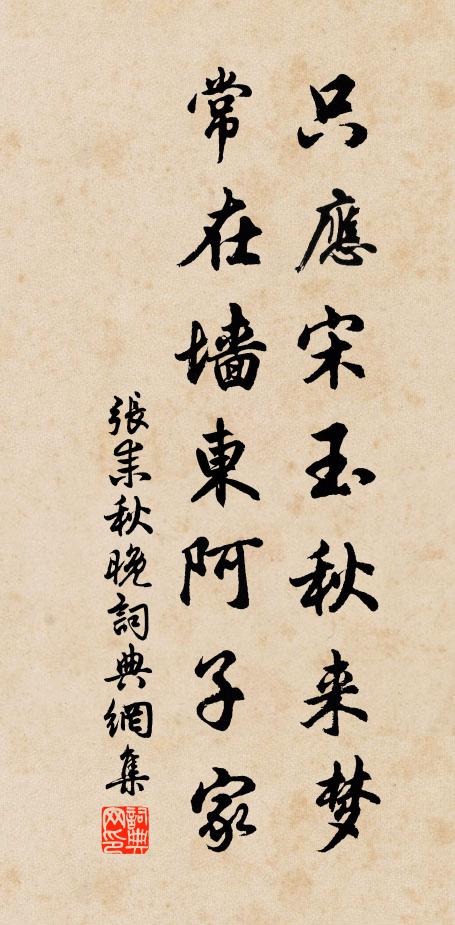 只應宋玉秋来梦
常在墙東阿子家
張耒秋晚詞典網集
詞典网印